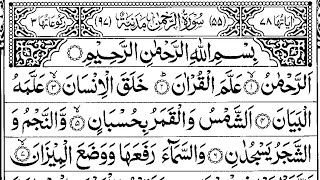 اٰیَاتُهَا ٧٨ (٥٥) سُوْرَةُ الرَّحْمٰنِ مَدَنِیَّةٌ (٩٧) رُكُوْعَاتُهَا ٣
بِسْمِ اللّٰهِ الرَّحْمٰنِ الرَّحِیْمِ
اَلرَّحْمٰنُ ۙ﴿۱﴾ عَلَّمَ الْقُرْاٰنَ ؕ﴿۲﴾ خَلَقَ الْاِنْسَانَ ۙ﴿۳﴾ عَلَّمَهُ
الْبَیَانَ ﴿۴﴾ اَلشَّمْسُ وَ الْقَمَرُ بِحُسْبَانٍ ﴿۵﴾ وَّ النَّجْمُ وَ
الشَّجَرُ یَسْجُدٰنِ ﴿۶﴾ وَ السَّمَآءَ رَفَعَهَا وَ وَضَعَ الْمِیْزَانَ ﴿۷﴾